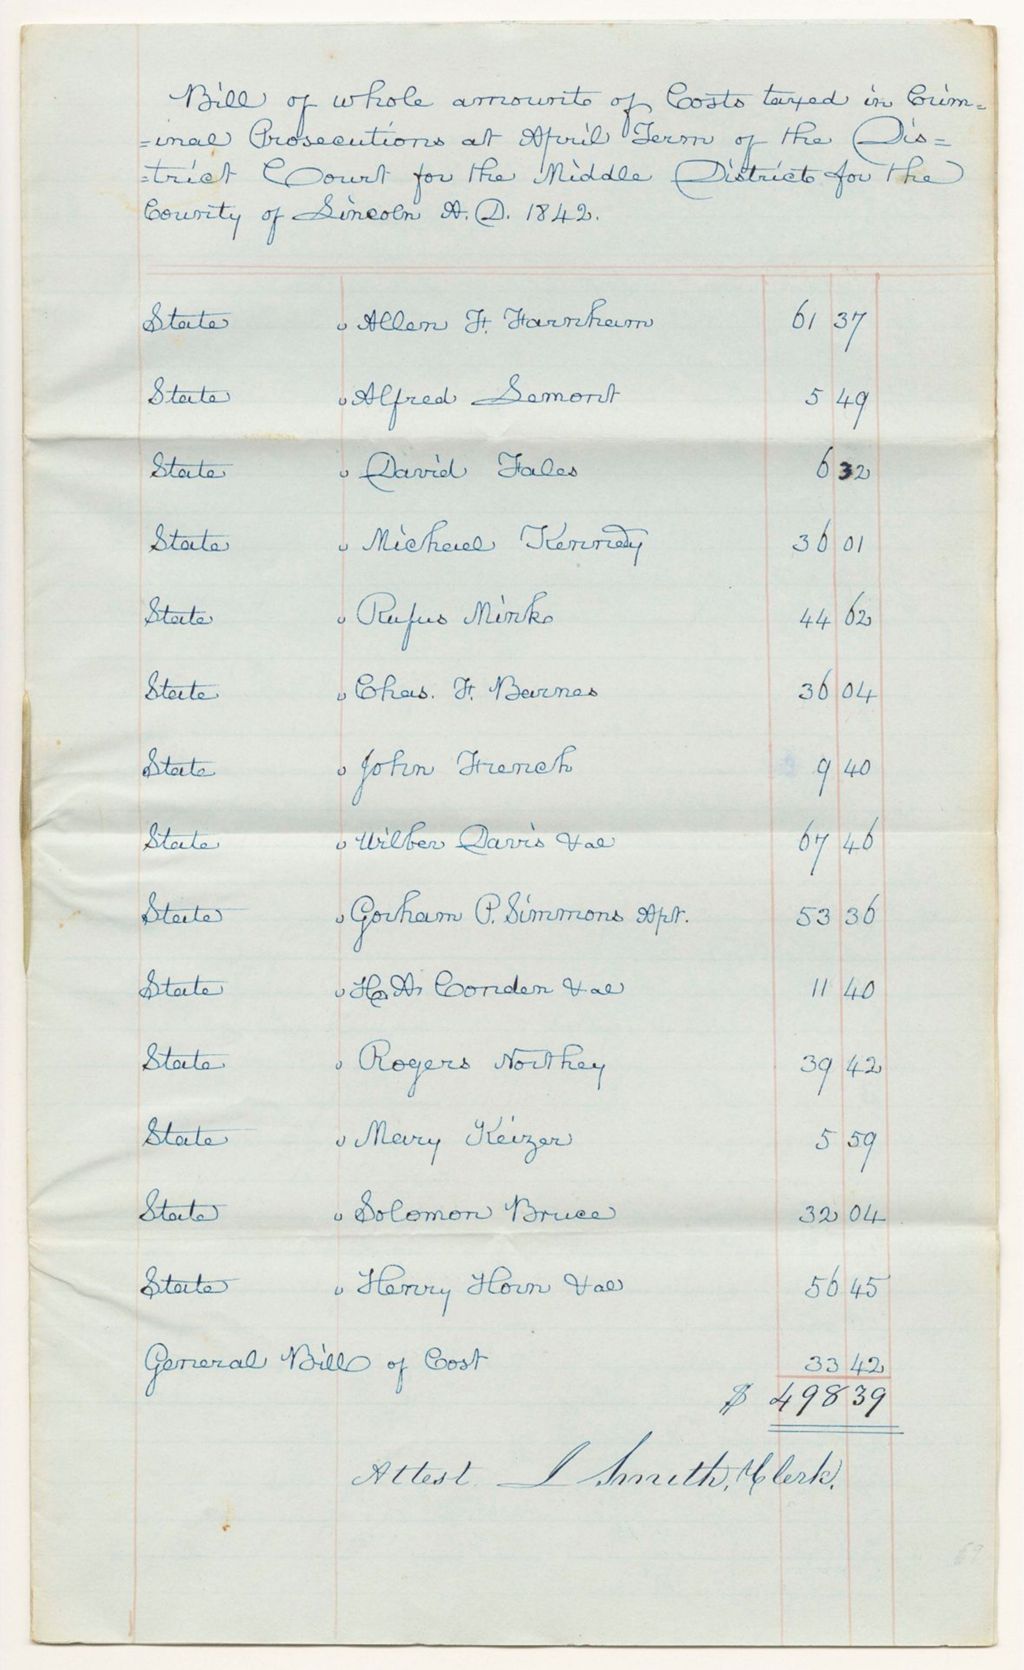 Bill of whole amounts of Costs taxed in Crim=
=inal Prosecutions at April Term of the Dis=
=trict Court for the Middle District for the
County of Lincoln A.D. 1842.
State v Allen F. Farnham 61 37
State v Alfred Lemont 5 49
State v David Fales 6 32
State v Michael Kennedy 36 01
State v Rufus Minks 44 62
State v Chas. F. Barnes 36 04
State v John French 9 40
State v Wilber Davis & al 67 46
State v Gorham P. Simmons Apt. 53 36
State v H. A. Conden & al 11 40
State v Rogers Northey 39 42
State v Mary Keizer 5 59
State v Solomon Bruce 32 04
State v Henry Horn & al 56 45
General Bill of Cost 33 42
$ 498 39
Attest J Smith, Clerk.